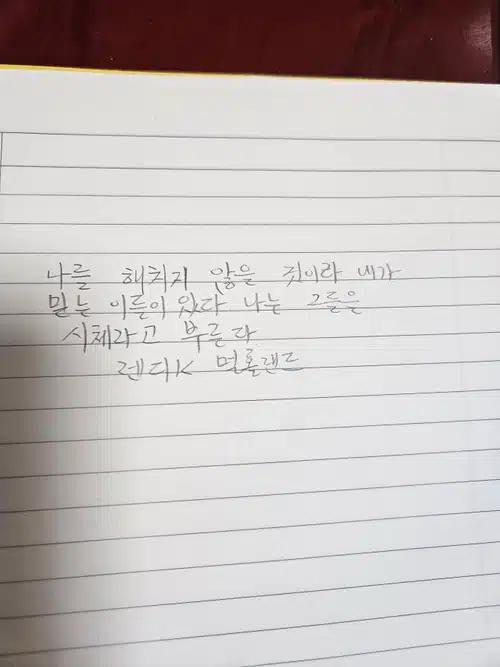 나를 해치지 않을 것이라 내가
믿는 이들이 있다 나는 그들을
시체라고 부른다
렌디K 멀홀랜드